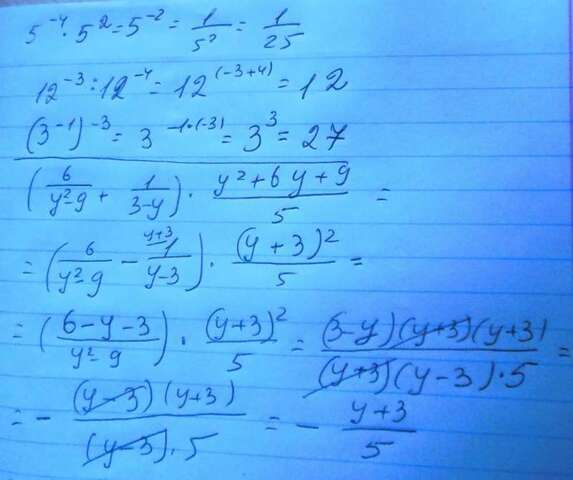 5⁻⁴ · 5² = 5⁻² = 1/5² = 1/25
12⁻³ : 12⁻⁴ = 12⁽⁻³⁺⁴⁾ = 12
(3⁻¹)⁻³ = 3⁻¹·⁽⁻³⁾ = 3³ = 27
(6/(y²-9) + 1/(3-y)) · (y²+6y+9)/5 =
= (6/(y²-9) - (y+3) 1/(y-3)) · (y+3)²/5 =
= ((6-y-3)/(y²-9)) · (y+3)²/5 = (3-y)(y+3)(y+3)/((y+3)(y-3)·5) =
= - (y-3)(y+3)/((y-3)·5) = - (y+3)/5